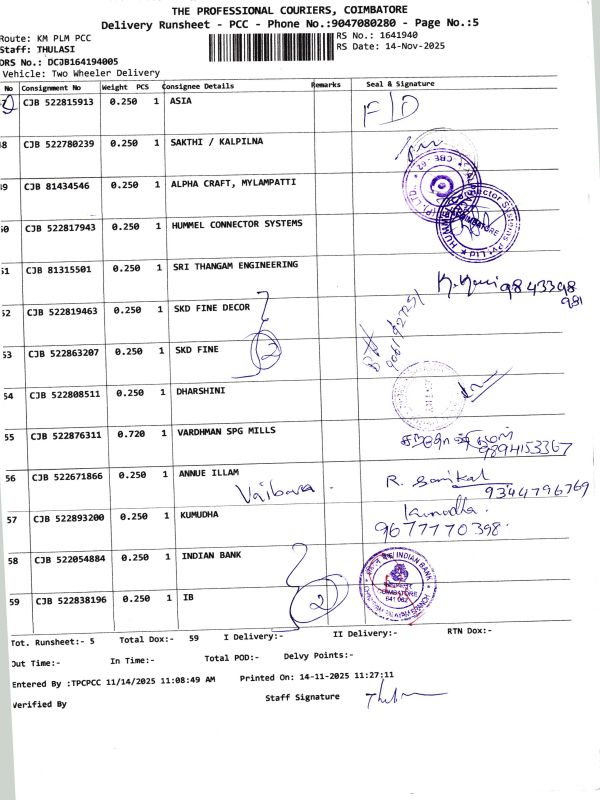 THE PROFESSIONAL COURIERS, COIMBATORE
Delivery Runsheet - PCC - Phone No.:9047080280 - Page No.:5
Route: KM PLM PCC
RS No.: 1641940
Staff: THULASI
RS Date: 14-Nov-2025
DRS No.: DCJB164194005
Vehicle: Two Wheeler Delivery
No Consignment No Weight PCS Consignee Details Remarks Seal & Signature
CJB 522815913 0.250 1 ASIA F/D
48 CJB 522780239 0.250 1 SAKTHI / KALPILNA
49 CJB 81434546 0.250 1 ALPHA CRAFT, MYLAMPATTI
50 CJB 522817943 0.250 1 HUMMEL CONNECTOR SYSTEMS
51 CJB 81315501 0.250 1 SRI THANGAM ENGINEERING
9843398
981
52 CJB 522819463 0.250 1 SKD FINE DECOR
53 CJB 522863207 0.250 1 SKD FINE 2
54 CJB 522808511 0.250 1 DHARSHINI
55 CJB 522876311 0.720 1 VARDHMAN SPG MILLS
9894153367
56 CJB 522671866 0.250 1 ANNUE ILLAM R.
9344796769
57 CJB 522893200 0.250 1 KUMUDHA Kumudha.
9677770398.
58 CJB 522054884 0.250 1 INDIAN BANK
INDIAN BANK
COIMBATORE
641 062
59 CJB 522838196 0.250 1 IB 2
Tot. Runsheet:- 5 Total Dox:- 59 I Delivery:- II Delivery:- RTN Dox:-
Out Time:- In Time:- Total POD:- Delvy Points:-
Entered By :TPCPCC 11/14/2025 11:08:49 AM Printed On: 14-11-2025 11:27:11
Verified By Staff Signature